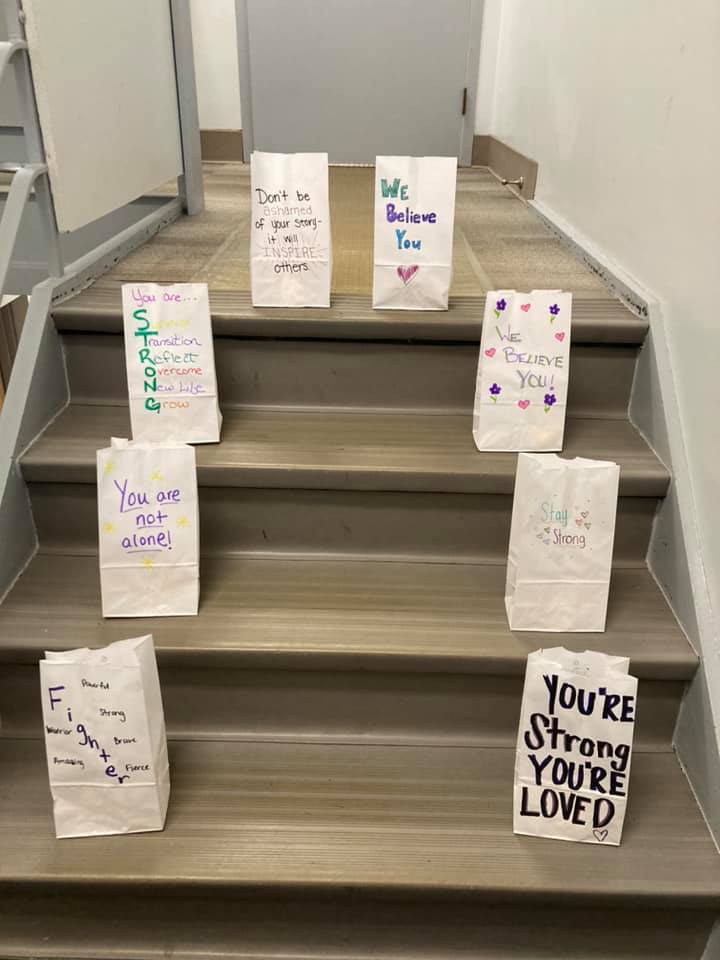 Don't be
ashamed
of your story-
it will
INSPIRE
others.
WE
Believe
You
You are...
S
Transition
Reflect
Overcome
New Life
Grow
WE
BELIEVE
YOU!
You are
not
alone!
Stay
Strong
Fighter
Powerful
Strong
Warrior
Brave
Amazing
Fierce
YOU'RE
Strong
YOU'RE
LOVED